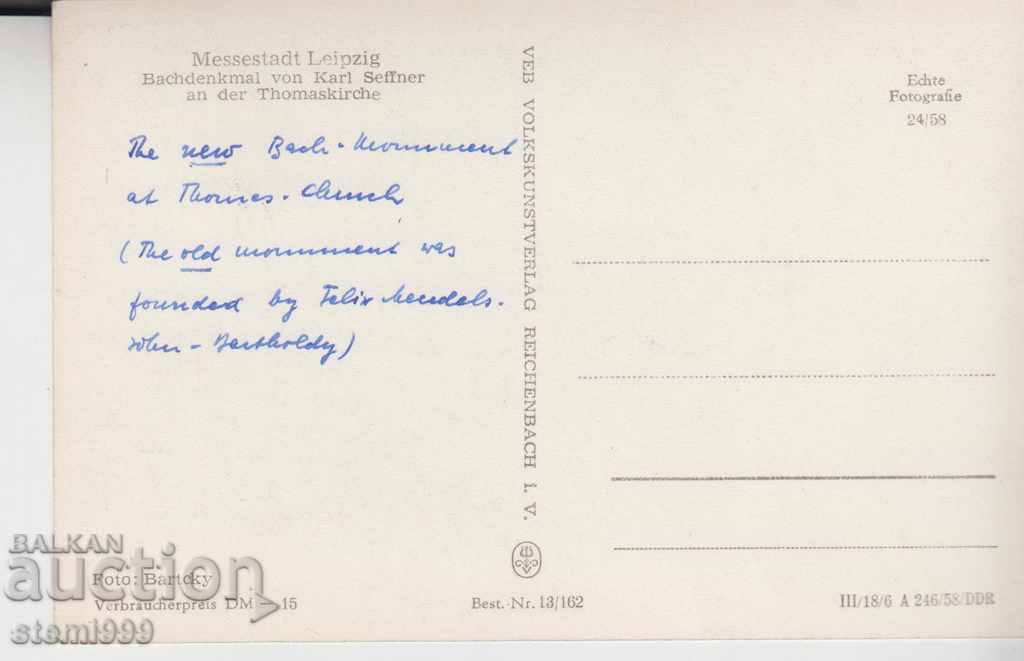 Messestadt Leipzig
Bachdenkmal von Karl Seffner
an der Thomaskirche
The new Bach-Monument
at Thomas-Church
(The old monument was
founded by Felix Mendels-
sohn-Bartholdy)
VEB VOLKSKUNSTVERLAG REICHENBACH i. V.
Echte
Fotografie
24/58
Foto: Bartcky
Verbraucherpreis DM —.15
Best.-Nr. 13/162
III/18/6 A 246/58/DDR
BALKAN
auction
stemi999